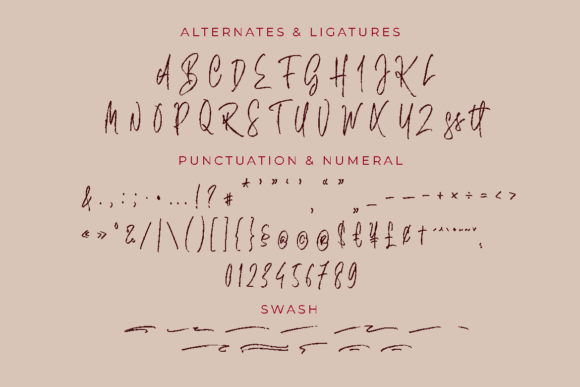 ALTERNATES & LIGATURES
A B C D E F G H I J K L
M N O P Q R S T U V W X Y Z ss tt
PUNCTUATION & NUMERAL
* ’ ” ‘ ’ “ ” ‚ „ _ - – — + × ÷ = < >
& . , : ; · • … ! ? #
« » ° % / | \ ( ) [ ] { } § ® © @ $ € ¥ £ ¢ †
0 1 2 3 4 5 6 7 8 9
SWASH